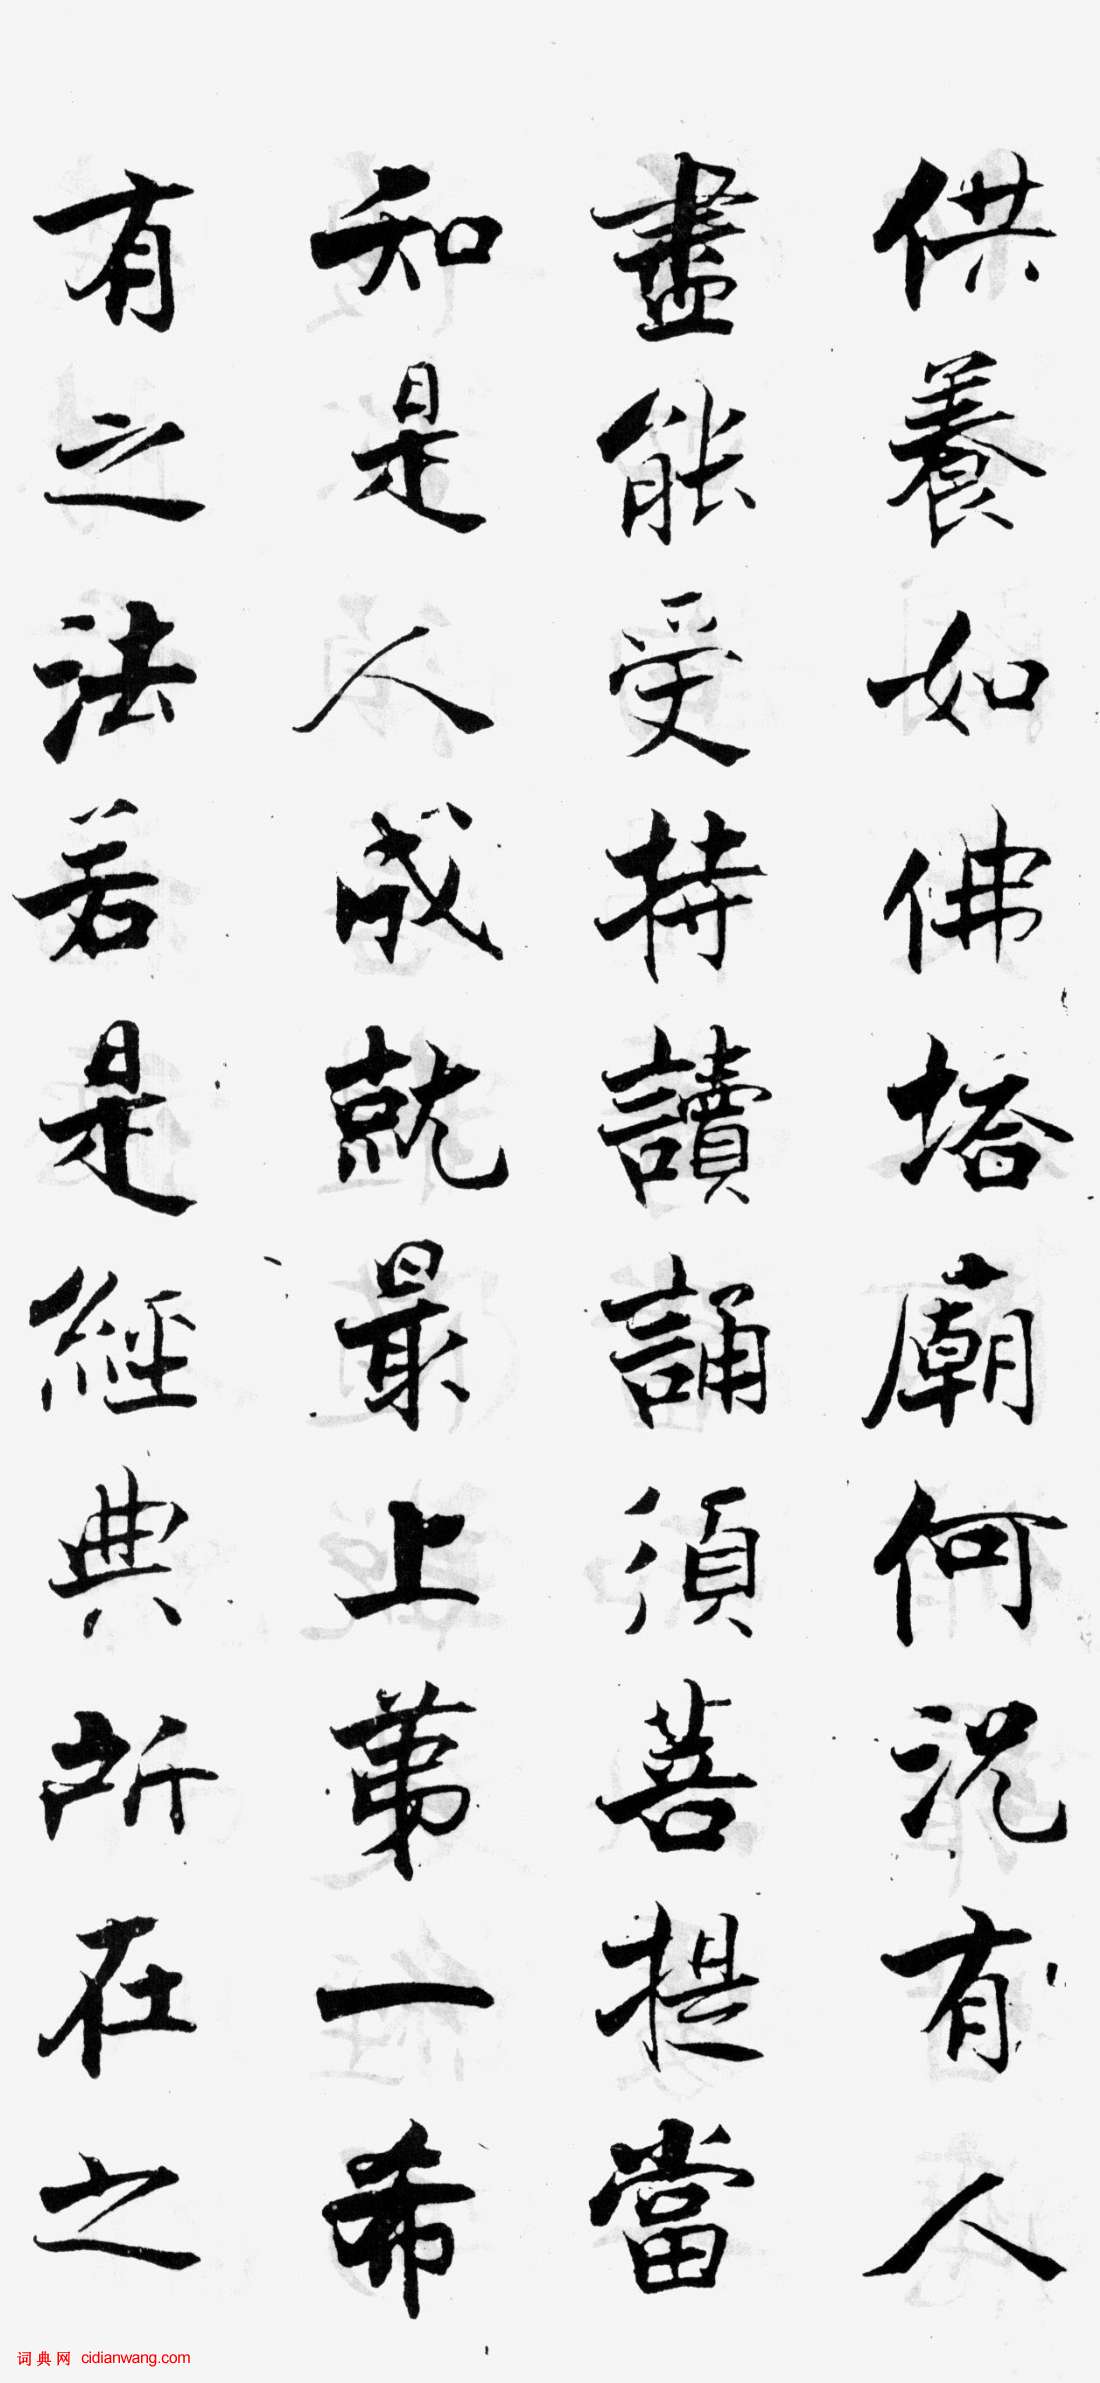 供養如佛塔廟何況有人
盡能受持讀誦須菩提當
知是人成就最上第一希
有之法若是經典所在之
词典网 cidianwang.com